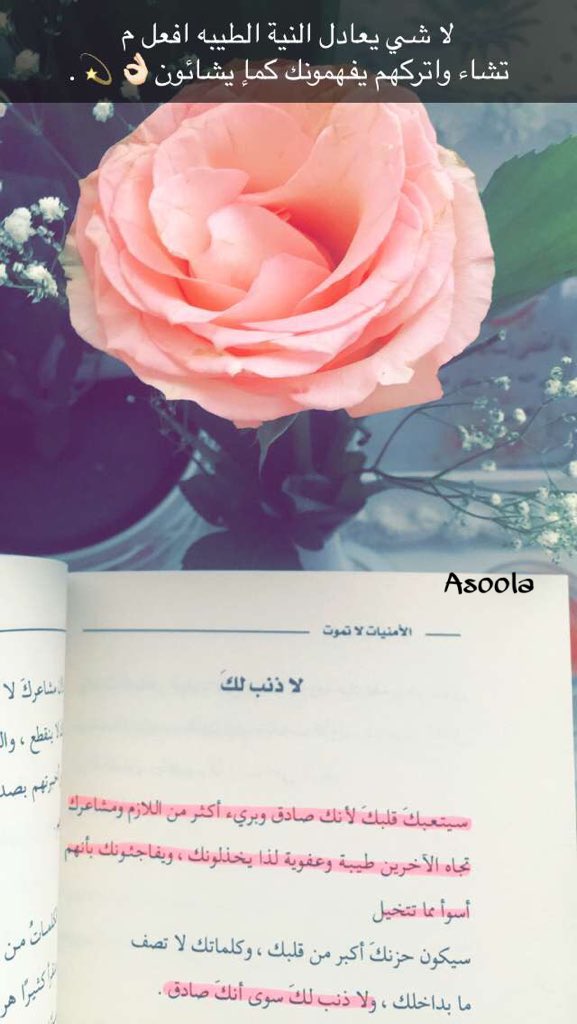 لا شي يعادل النية الطيبه افعل م
تشاء واتركهم يفهمونك كمإ يشائون 👌🏻 💫 .
Asoola
الأمنيات لا تموت
لا ذنب لكَ
سيتعبكَ قلبكَ لأنك صادق وبريء أكثر من اللازم ومشاعرك
تجاه الآخرين طيبة وعفوية لذا يخذلونك ، ويفاجئونك بأنهم
أسوأ مما تتخيل
سيكون حزنكَ أكبر من قلبك ، وكلماتك لا تصف
ما بداخلك ، ولا ذنب لكَ سوى أنكَ صادق .
مشاعركَ لا
ينقطع ، وال
بصد
من
كثيرًا هر